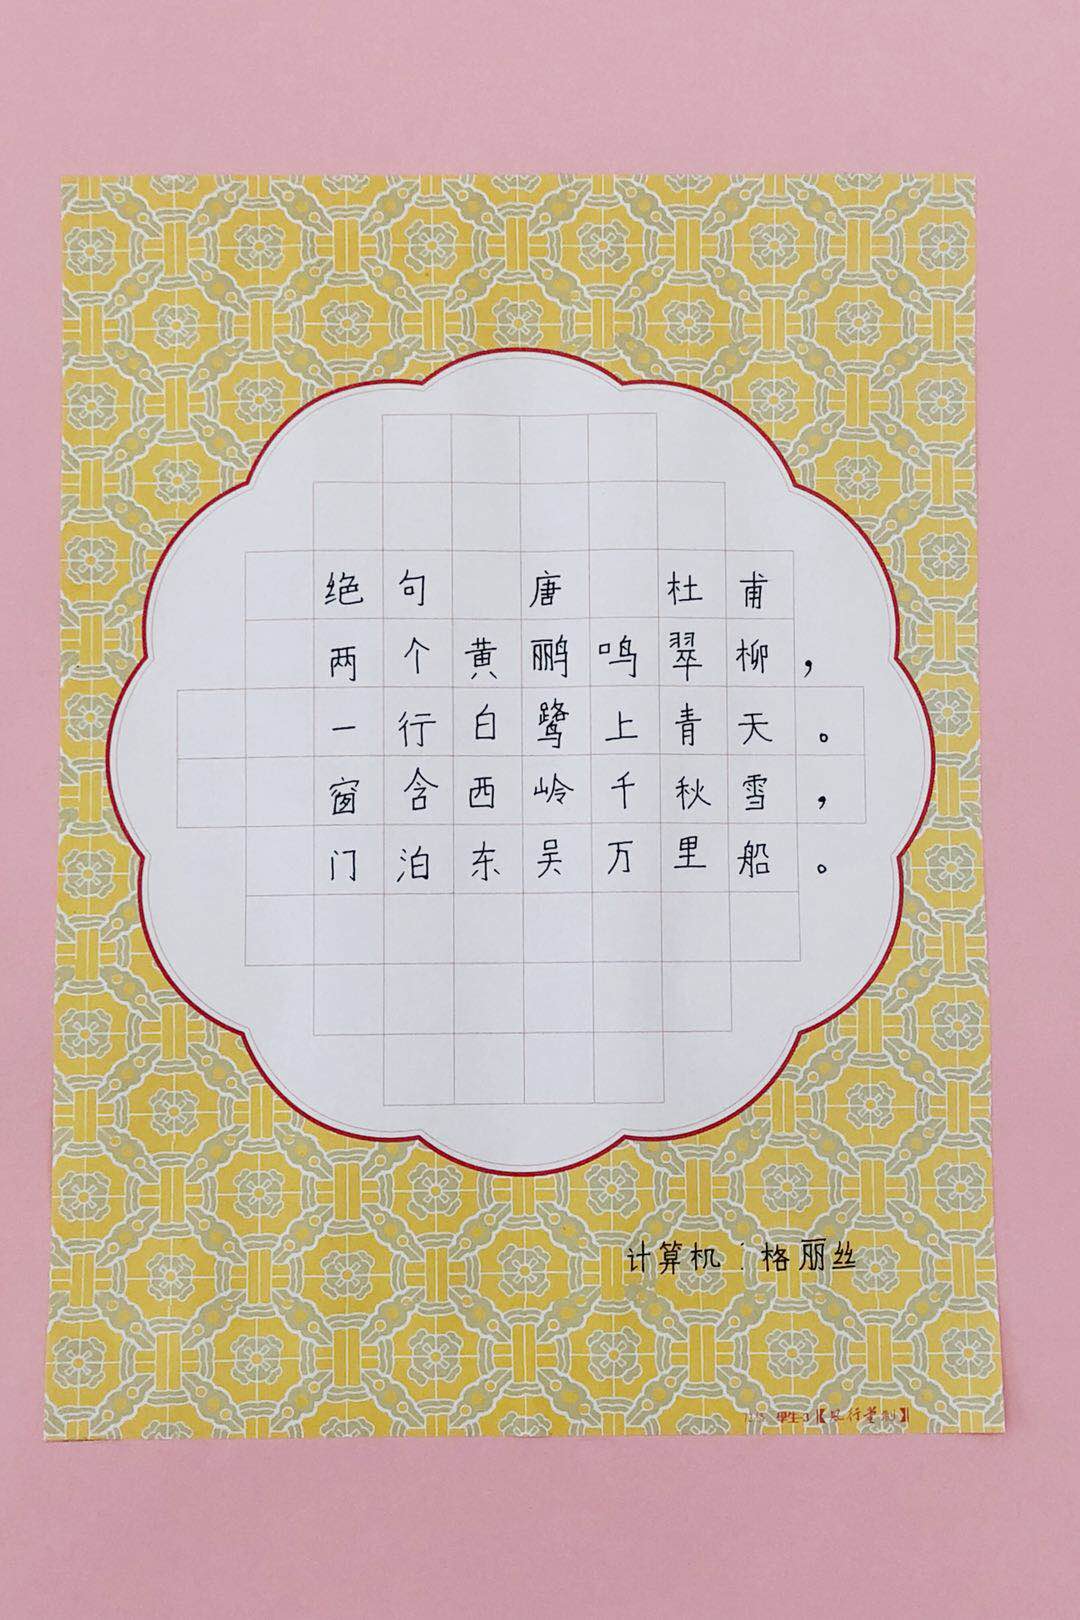 绝句 唐 杜甫
两个黄鹂鸣翠柳，
一行白鹭上青天。
窗含西岭千秋雪，
门泊东吴万里船。
计算机：格丽丝
學生-3